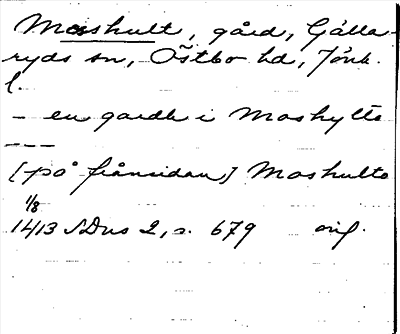 Moshult, gård, Gälla-
ryds sn, Östbo hd, Jönk.
l.
- en gardh i Moshylte
---
[på frånsidan] Moshulta
1/8
1413 SDns 2, s. 679 orig.